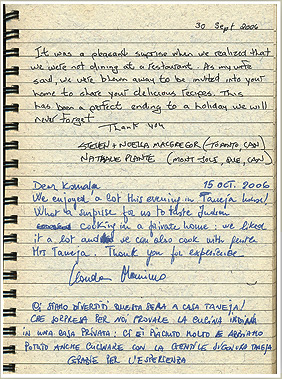 30 Sept 2006
It was a pleasant suprise when we realized that
we were not dining at a restaurant. As my wife
said, we were blown away to be invited into your
home to share your delicious recipes. This
has been a perfect ending to a holiday we will
never forget
Thank you
STEVEN + NOELLA MACGREGOR (TORONTO, CAN)
NATHALIE PLANTE (MONT-JOLI, QUE, CAN)
Dear Komala 15 OCT. 2006
We enjoyed a lot this evening in Taneja house!
What a surprise for us to taste Indian
cooking in a private home: we liked
it a lot and we can also cook with gentle
Mrs Taneja. Thank you for experience
CI SIAMO DIVERTITI QUESTA SERA A CASA TANEJA!
CHE SORPRESA PER NOI PROVARE LA CUCINA INDIANA
IN UNA CASA PRIVATA: CI È PIACIUTO MOLTO E ABBIAMO
POTUTO ANCHE CUCINARE CON LA GENTILE SIGNORA TANEJA
GRAZIE PER L'ESPERIENZA